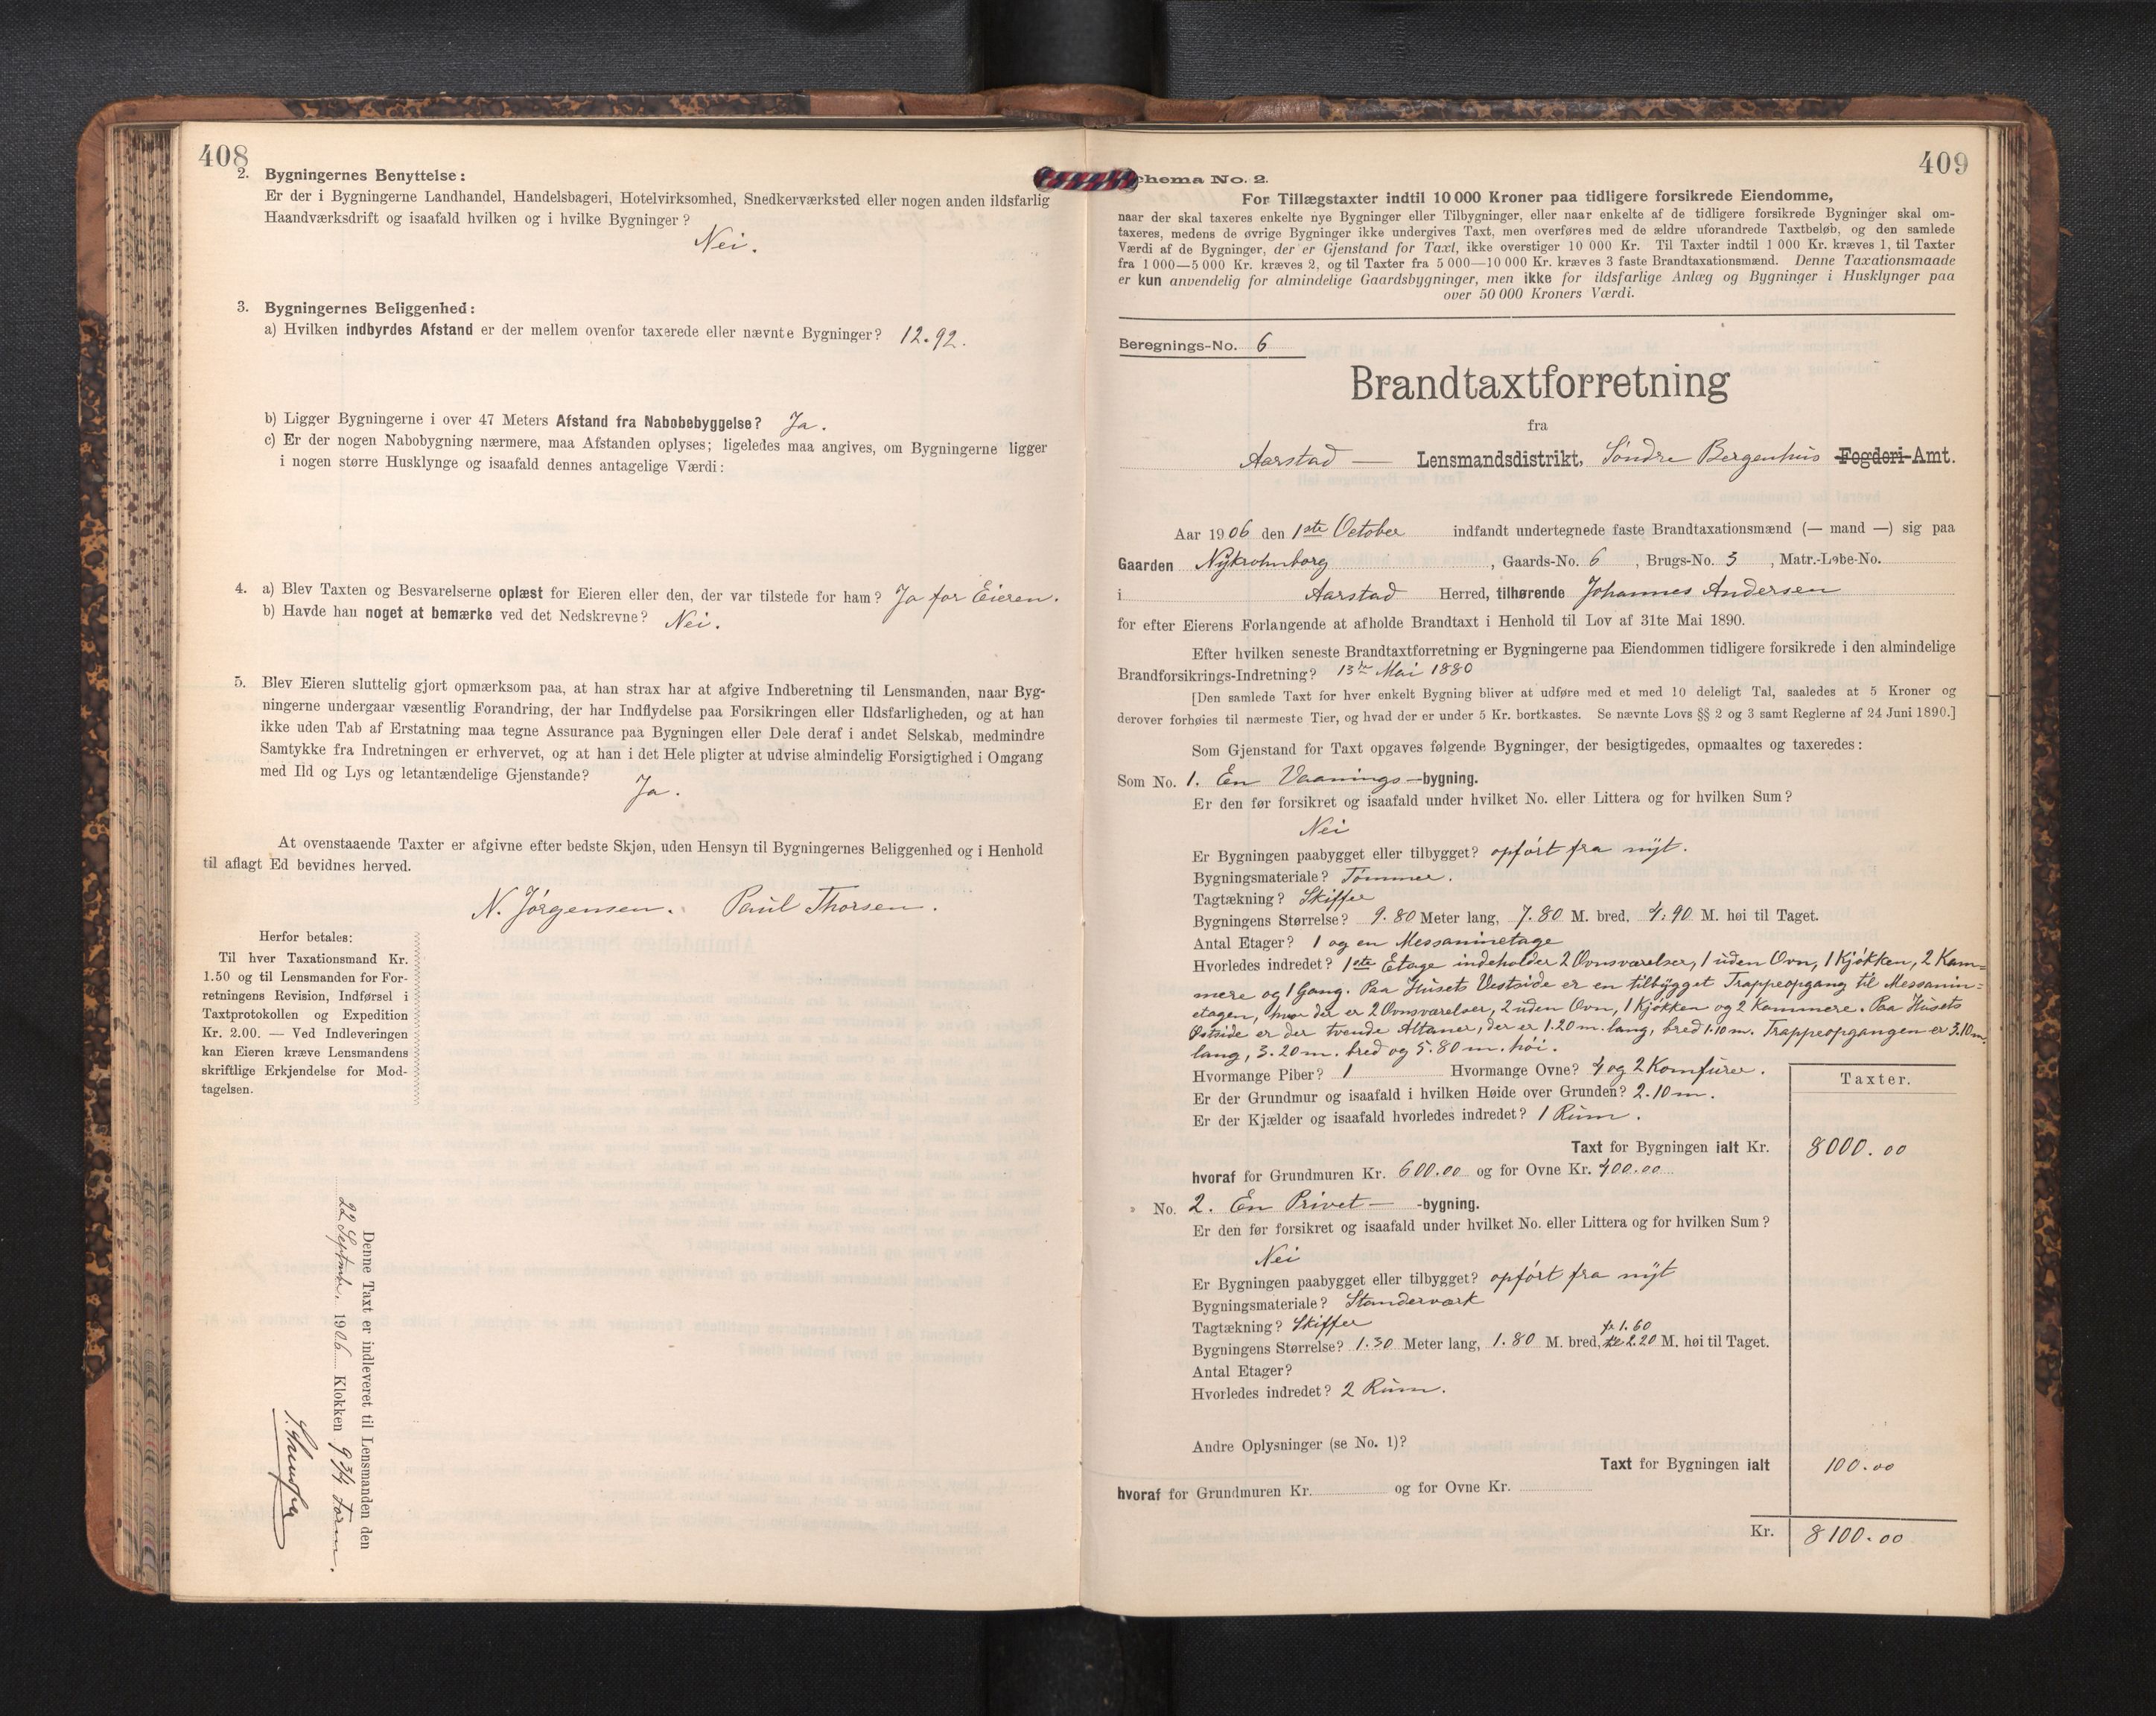 408
2. Bygningernes Benyttelse:
Er der i Bygningerne Landhandel, Handelsbageri, Hotelvirksomhed, Snedkerværksted eller nogen anden ildsfarlig
Haandværksdrift og isaafald hvilken og i hvilke Bygninger?
Nei.
3. Bygningernes Beliggenhed:
a) Hvilken indbyrdes Afstand er der mellem ovenfor taxerede eller nævnte Bygninger? 12.92.
b) Ligger Bygningerne i over 47 Meters Afstand fra Nabobebyggelse? Ja.
c) Er der nogen Nabobygning nærmere, maa Afstanden oplyses; ligeledes maa angives, om Bygningerne ligger
i nogen større Husklynge og isaafald dennes antagelige Værdi:
4. a) Blev Taxten og Besvarelserne oplæst for Eieren eller den, der var tilstede for ham? Ja for Eieren.
b) Havde han noget at bemærke ved det Nedskrevne? Nei.
5. Blev Eieren sluttelig gjort opmærksom paa, at han strax har at afgive Indberetning til Lensmanden, naar Byg-
ningerne undergaar væsentlig Forandring, der har Indflydelse paa Forsikringen eller Ildsfarligheden, og at han
ikke uden Tab af Erstatning maa tegne Assurance paa Bygningen eller Dele deraf i andet Selskab, medmindre
Samtykke fra Indretningen er erhvervet, og at han i det Hele pligter at udvise almindelig Forsigtighed i Omgang
med Ild og Lys og letantændelige Gjenstande?
Ja.
At ovenstaaende Taxter er afgivne efter bedste Skjøn, uden Hensyn til Bygningernes Beliggenhed og i Henhold
til aflagt Ed bevidnes herved.
N. Jørgensen. Paul Thorsen.
Herfor betales:
Til hver Taxationsmand Kr.
1.50 og til Lensmanden for For-
retningens Revision, Indførsel i
Taxtprotokollen og Expedition
Kr. 2.00. — Ved Indleveringen
kan Eieren kræve Lensmandens
skriftlige Erkjendelse for Mod-
tagelsen.
Denne Taxt er indleveret til Lensmanden den
22 Septmbr. 1906 Klokken 9 3/4 Form.
409
Schema No. 2.
For Tillægstaxter indtil 10 000 Kroner paa tidligere forsikrede Eiendomme,
naar der skal taxeres enkelte nye Bygninger eller Tilbygninger, eller naar enkelte af de tidligere forsikrede Bygninger skal om-
taxeres, medens de øvrige Bygninger ikke undergives Taxt, men overføres med de ældre uforandrede Taxtbeløb, og den samlede
Værdi af de Bygninger, der er Gjenstand for Taxt, ikke overstiger 10 000 Kr. Til Taxter indtil 1 000 Kr. kræves 1, til Taxter
fra 1 000—5 000 Kr. kræves 2, og til Taxter fra 5 000—10 000 Kr. kræves 3 faste Brandtaxationsmænd. Denne Taxationsmaade
er kun anvendelig for almindelige Gaardsbygninger, men ikke for ildsfarlige Anlæg og Bygninger i Husklynger paa
over 50 000 Kroners Værdi.
Beregnings-No. 6
Brandtaxtforretning
fra
Aarstad — Lensmandsdistrikt, Søndre Bergenhus Fogderi-Amt.
Aar 1906 den 1ste October indfandt undertegnede faste Brandtaxationsmænd (— mand —) sig paa
Gaarden Nykrohnborg, Gaards-No. 6, Brugs-No. 3, Matr.-Løbe-No.
i Aarstad Herred, tilhørende Johannes Andersen
for efter Eierens Forlangende at afholde Brandtaxt i Henhold til Lov af 31te Mai 1890.
Efter hvilken seneste Brandtaxtforretning er Bygningerne paa Eiendommen tidligere forsikrede i den almindelige
Brandforsikrings-Indretning? 13de Mai 1880
[Den samlede Taxt for hver enkelt Bygning bliver at udføre med et med 10 deleligt Tal, saaledes at 5 Kroner og
derover forhøies til nærmeste Tier, og hvad der er under 5 Kr. bortkastes. Se nævnte Lovs §§ 2 og 3 samt Reglerne af 24 Juni 1890.]
Som Gjenstand for Taxt opgaves følgende Bygninger, der besigtigedes, opmaaltes og taxeredes:
Som No. 1. En Vaanings—bygning.
Er den før forsikret og isaafald under hvilket No. eller Littera og for hvilken Sum?
Nei
Er Bygningen paabygget eller tilbygget? opført fra nyt.
Bygningsmateriale? Tømmer.
Tagtækning? Skiffer
Bygningens Størrelse? 9.80 Meter lang, 7.80 M. bred, 4.90 M. høi til Taget.
Antal Etager? 1 og en Messaninetage
Hvorledes indredet? 1ste Etage indeholder 2 Ovnsværelser, 1 uden Ovn, 1 Kjøkken, 2 Kam=
mere og 1 Gang. Paa Husets Vestside er en tilbygget Trappeopgang til Messanin=
etagen, hvor der er 2 Ovnsværelser, 2 uden Ovn, 1 Kjøkken og 2 Kammere. Paa Husets
Østside er der tvende Altaner, der er 1.20 m. lang, bred 1.10 m. Trappeopgangen er 3.10 m.
lang, 3.20 m. bred og 5.80 m. høi.
Hvormange Piber? 1 Hvormange Ovne? 4 og 2 Komfurer.
Er der Grundmur og isaafald i hvilken Høide over Grunden? 2.10 m.
Er der Kjælder og isaafald hvorledes indredet? 1 Rum.
Taxter.
Taxt for Bygningen ialt Kr. 8000.00
hvoraf for Grundmuren Kr. 600.00 og for Ovne Kr. 400.00
No. 2. En Privet— -bygning.
Er den før forsikret og isaafald under hvilket No. eller Littera og for hvilken Sum?
Nei
Er Bygningen paabygget eller tilbygget? opført fra nyt
Bygningsmateriale? Standerværk
Tagtækning? Skiffer
fr 1.60
Bygningens Størrelse? 1.30 Meter lang, 1.80 M. bred, 2.20 M. høi til Taget.
Antal Etager?
Hvorledes indredet? 2 Rum.
Andre Oplysninger (se No. 1)?
Taxt for Bygningen ialt 100.00
hvoraf for Grundmuren Kr. og for Ovne Kr.
Kr. 8100.00